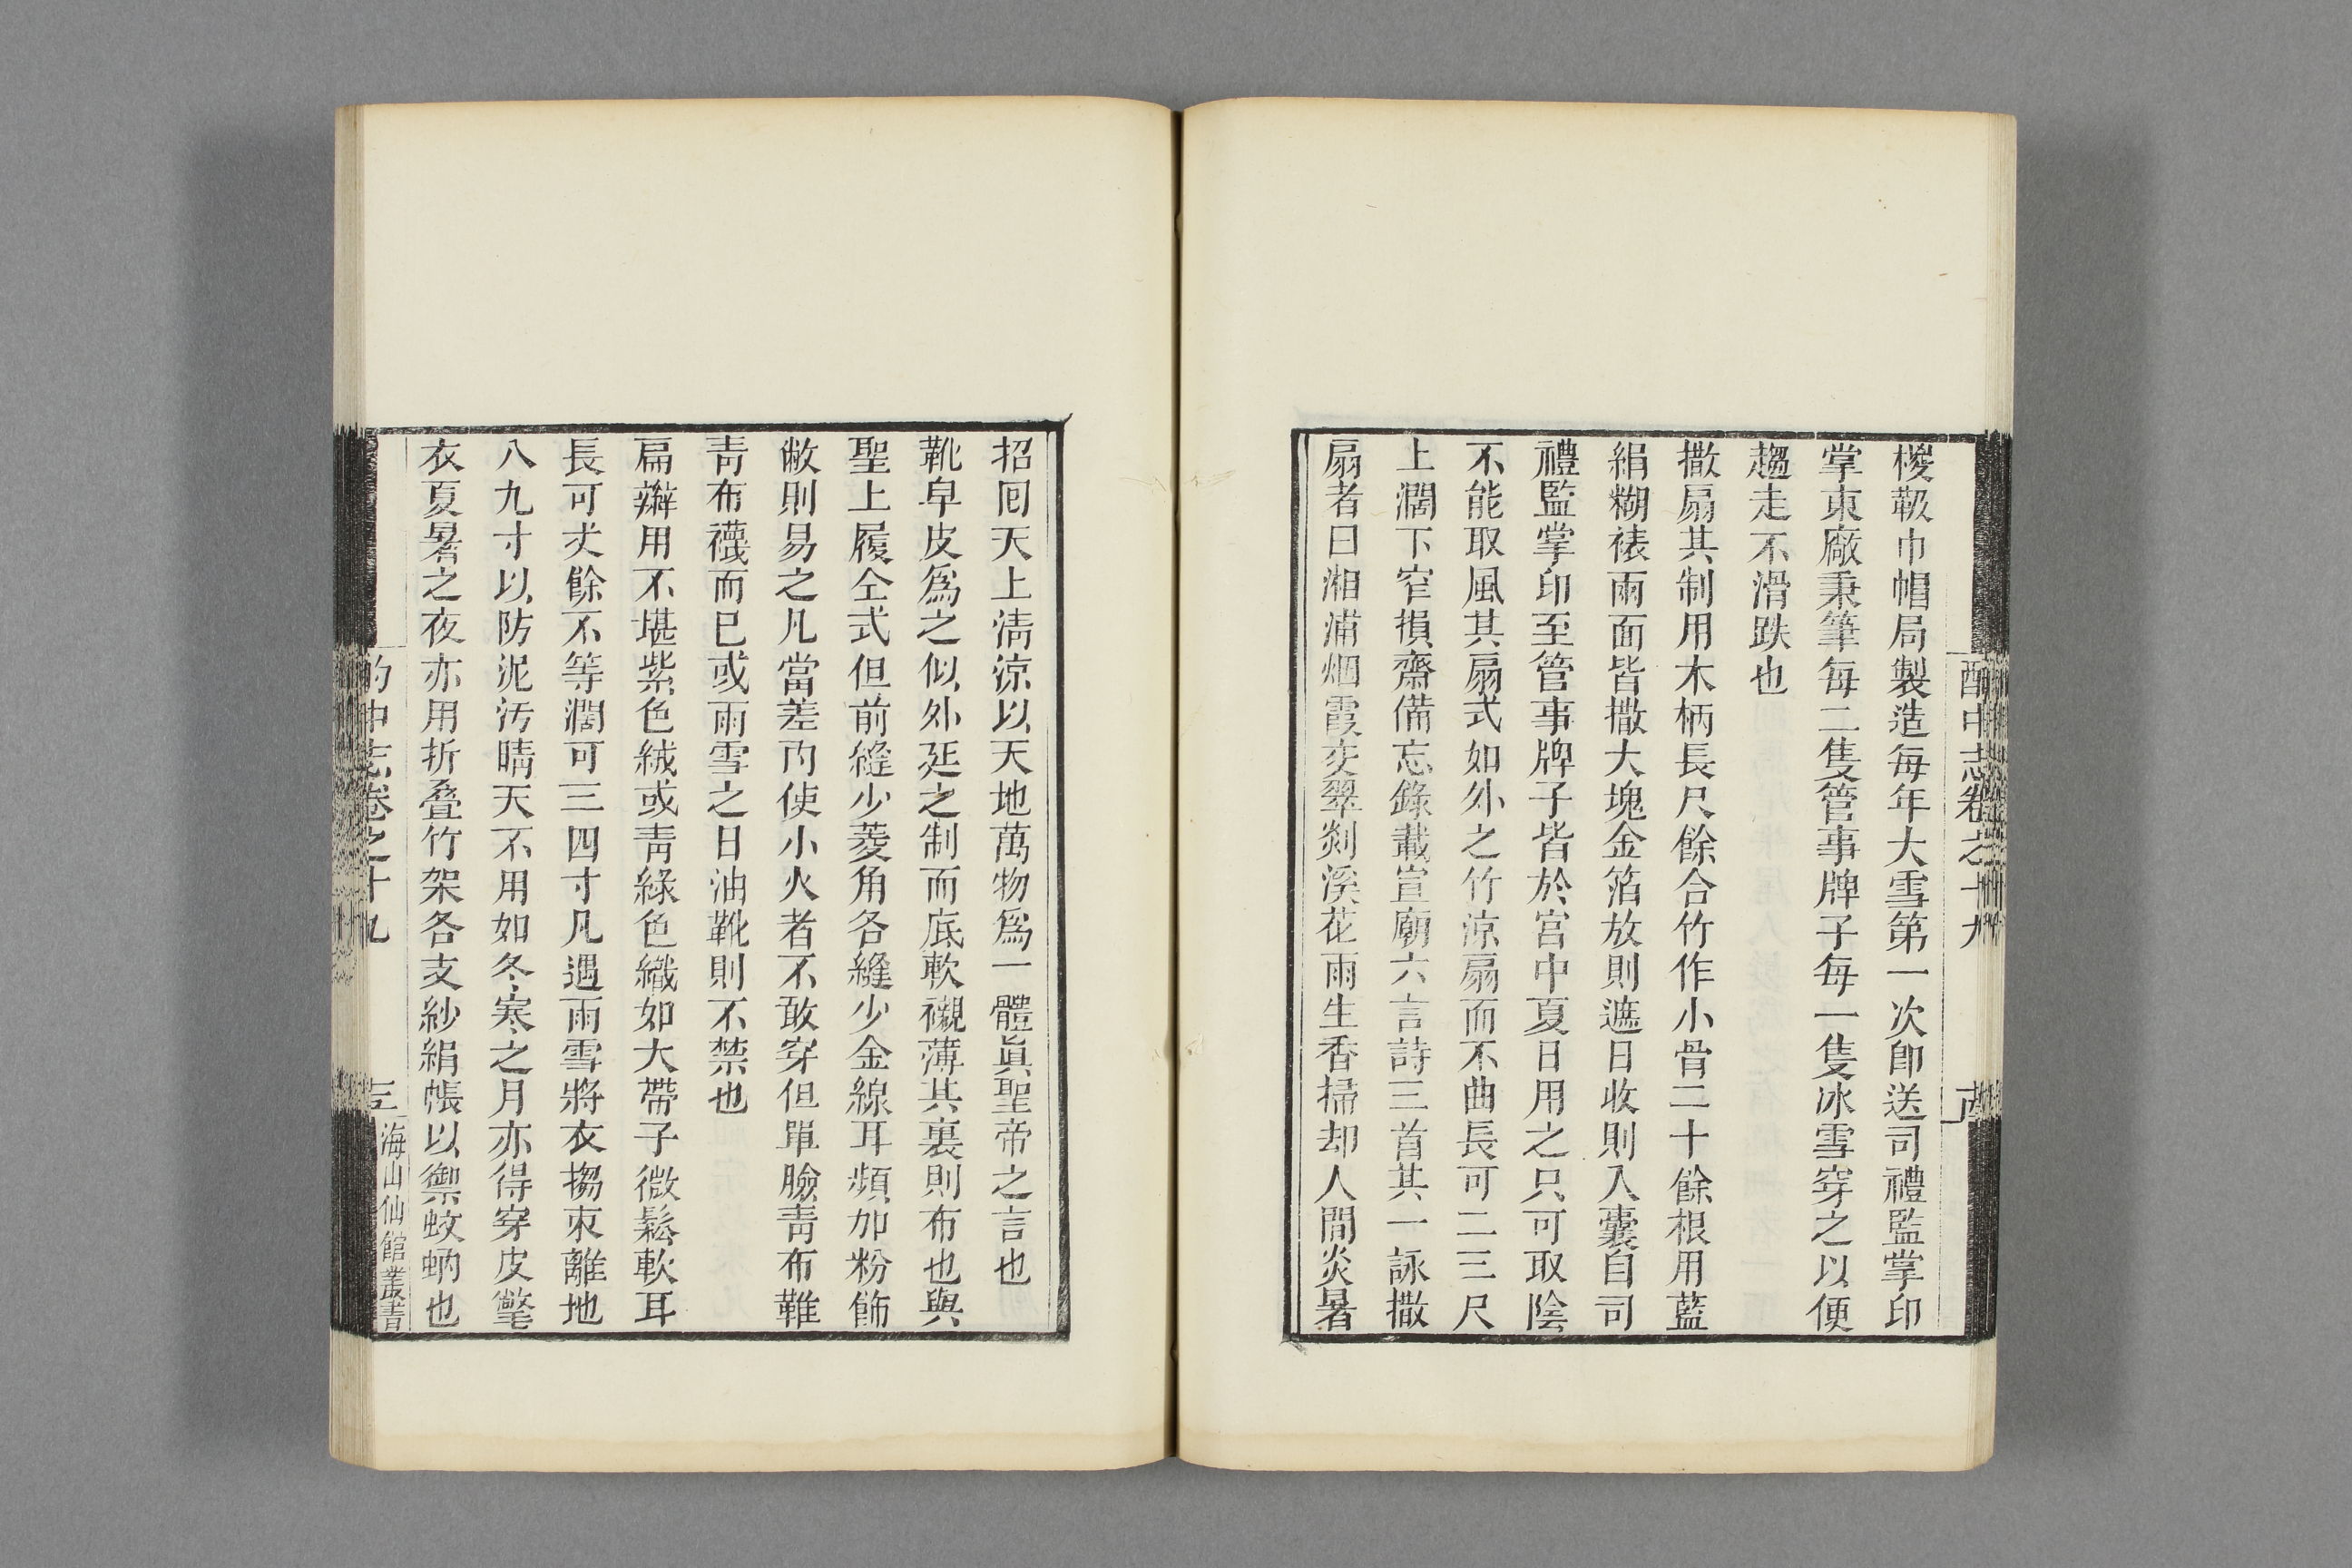 酌中志卷之十九
椶靸巾帽局製造每年大雪第一次卽送司禮監掌印
掌東廠秉筆每二隻管事牌子每一隻冰雪穿之以便
趨走不滑跌也
撒扇其制用木柄長尺餘合竹作小骨二十餘根用藍
絹糊裱兩面皆撒大塊金箔放則遮日收則入囊自司
禮監掌印至管事牌子皆於宮中夏日用之只可取陰
不能取風其扇式如外之竹涼扇而不曲長可二三尺
上濶下窄損齋備忘錄載宣廟六言詩三首其一詠撒
扇者曰湘浦烟霞交翠剡溪花雨生香掃却人間炎暑
招囘天上淸涼以天地萬物爲一體眞聖帝之言也
靴皁皮爲之似外廷之制而底軟襯薄其裏則布也與
聖上履仝式但前縫少菱角各縫少金線耳頻加粉飾
敝則易之凡當差內使小火者不敢穿但單臉靑布鞋
靑布襪而已或雨雪之日油靴則不禁也
扁辮用不堪紫色絨或靑綠色織如大帶子微鬆軟耳
長可丈餘不等濶可三四寸凡遇雨雪將衣搊束離地
八九寸以防泥汚晴天不用如冬寒之月亦得穿皮氅
衣夏暑之夜亦用折叠竹架各支紗絹帳以禦蚊蚋也
酌中志卷之十九
海山仙館叢書